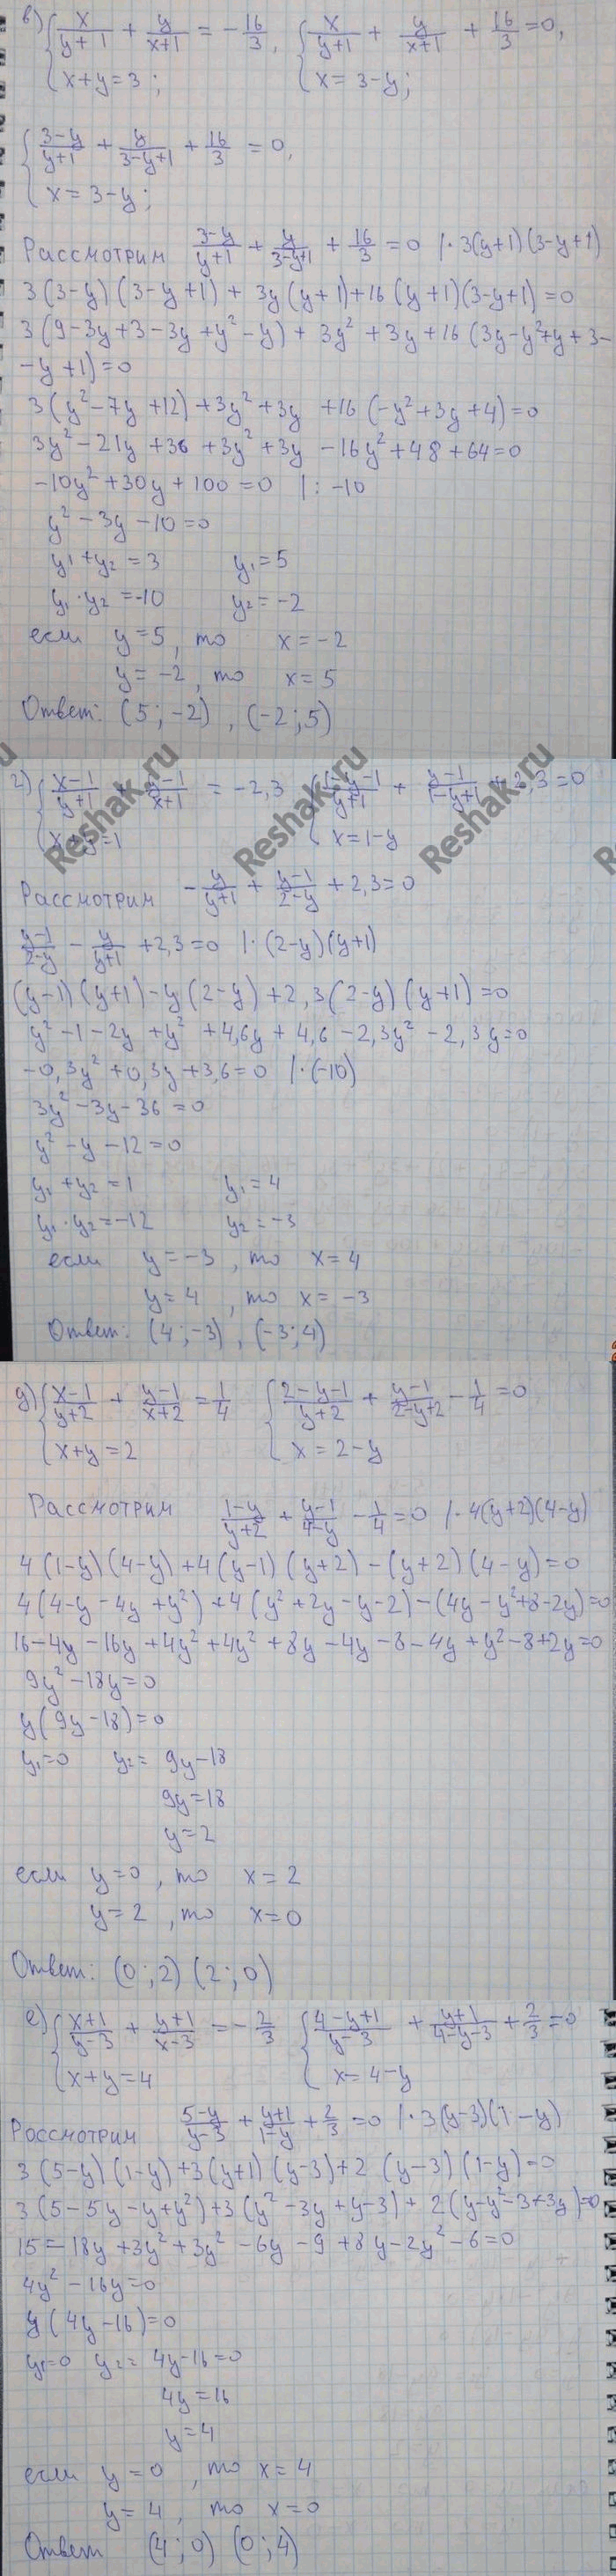 в) { x/(y+1) + y/(x+1) = -16/3, { x/(y+1) + y/(x+1) + 16/3 = 0,
x+y=3; x=3-y;
{ (3-y)/(y+1) + y/(3-y+1) + 16/3 = 0,
x=3-y;
Рассмотрим (3-y)/(y+1) + y/(3-y+1) + 16/3 = 0 |·3(y+1)(3-y+1)
3(3-y)(3-y+1) + 3y(y+1)+16(y+1)(3-y+1)=0
3(9-3y+3-3y+y²-y) + 3y²+3y+16(3y-y²+y+3-
-y+1)=0
3(y²-7y+12)+3y²+3y+16(-y²+3y+4)=0
3y²-21y+36+3y²+3y-16y²+48+64=0
-10y²+30y+100=0 |:-10
y²-3y-10=0
y₁+y₂=3 y₁=5
y₁·y₂=-10 y₂=-2
если y=5, то x=-2
y=-2, то x=5
Ответ: (5;-2), (-2;5)
г) { (x-1)/(y+1) + (y-1)/(x+1) = -2,3 { (1-y-1)/(y+1) + (y-1)/(1-y+1) + 2,3=0
x+y=1 x=1-y
Reshak.ru Reshak.ru Reshak.ru
Рассмотрим -y/(y+1) + (y-1)/(2-y) + 2,3=0
(y-1)/(2-y) - y/(y+1) + 2,3=0 |·(2-y)(y+1)
(y-1)(y+1)-y(2-y)+2,3(2-y)(y+1)=0
y²-1-2y+y²+4,6y+4,6-2,3y²-2,3y=0
-0,3y²+0,3y+3,6=0 |·(-10)
3y²-3y-36=0
y²-y-12=0
y₁+y₂=1 y₁=4
y₁·y₂=-12 y₂=-3
если y=-3, то x=4
y=4, то x=-3
Ответ: (4;-3), (-3;4)
д) { (x-1)/(y+2) + (y-1)/(x+2) = 1/4 { (2-y-1)/(y+2) + (y-1)/(2-y+2) - 1/4 = 0
x+y=2 x=2-y
Рассмотрим (1-y)/(y+2) + (y-1)/(4-y) - 1/4 = 0 |·4(y+2)(4-y)
4(1-y)(4-y)+4(y-1)(y+2)-(y+2)(4-y)=0
4(4-y-4y+y²)+4(y²+2y-y-2)-(4y-y²+8-2y)=0
16-4y-16y+4y²+4y²+8y-4y-8-4y+y²-8+2y=0
9y²-18y=0
y(9y-18)=0
y₁=0 y₂= 9y-18
9y=18
y=2
если y=0, то x=2
y=2, то x=0
Ответ: (0;2) (2;0)
е) { (x+1)/(y-3) + (y+1)/(x-3) = -2/3 { (4-y+1)/(y-3) + (y+1)/(4-y-3) + 2/3 = 0
x+y=4 x=4-y
Россмотрим (5-y)/(y-3) + (y+1)/(1-y) + 2/3 = 0 |·3(y-3)(1-y)
3(5-y)(1-y)+3(y+1)(y-3)+2(y-3)(1-y)=0
3(5-5y-y+y²)+3(y²-3y+y-3)+2(y-y²-3+3y)=0
15-18y+3y²+3y²-6y-9+8y-2y²-6=0
4y²-16y=0
y(4y-16)=0
y₁=0 y₂= 4y-16=0
4y=16
y=4
если y=0, то x=4
y=4, то x=0
Ответ (4;0) (0;4)